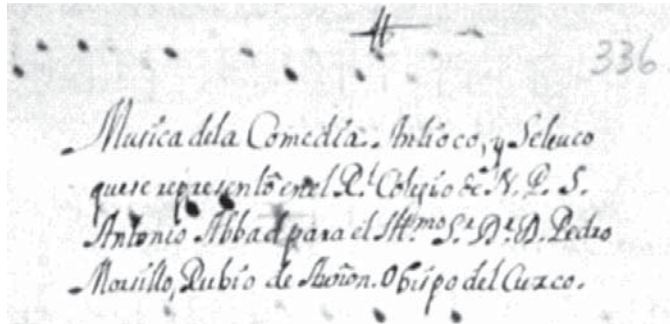 336
Musica dela Comedia. Antioco, y Seleuco
que se representô en el R.l Colegio de N. P. S.
Antonio Abbad para el Ill.mo S.r D.r D. Pedro
Morsillo, Rubio de Auñon. Obispo del Cuzco.